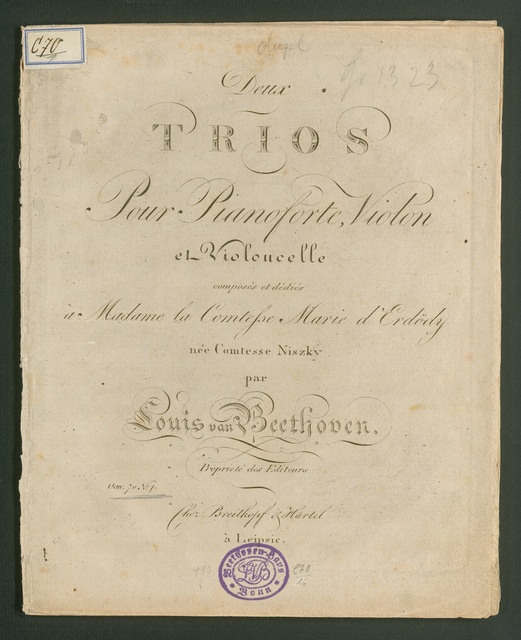 C 70
Deux
TRIOS
Pour Pianoforte, Violon
et Violoncelle
composés et dédiés
à Madame la Comtesse Marie d'Erdödy
née Comtesse Niszky
par
Louis van Beethoven.
Propriété des Editeurs
Oeuv. 70 No 1.
Chez Breitkopf & Härtel
à Leipsic.
Beethoven-Haus
Bonn